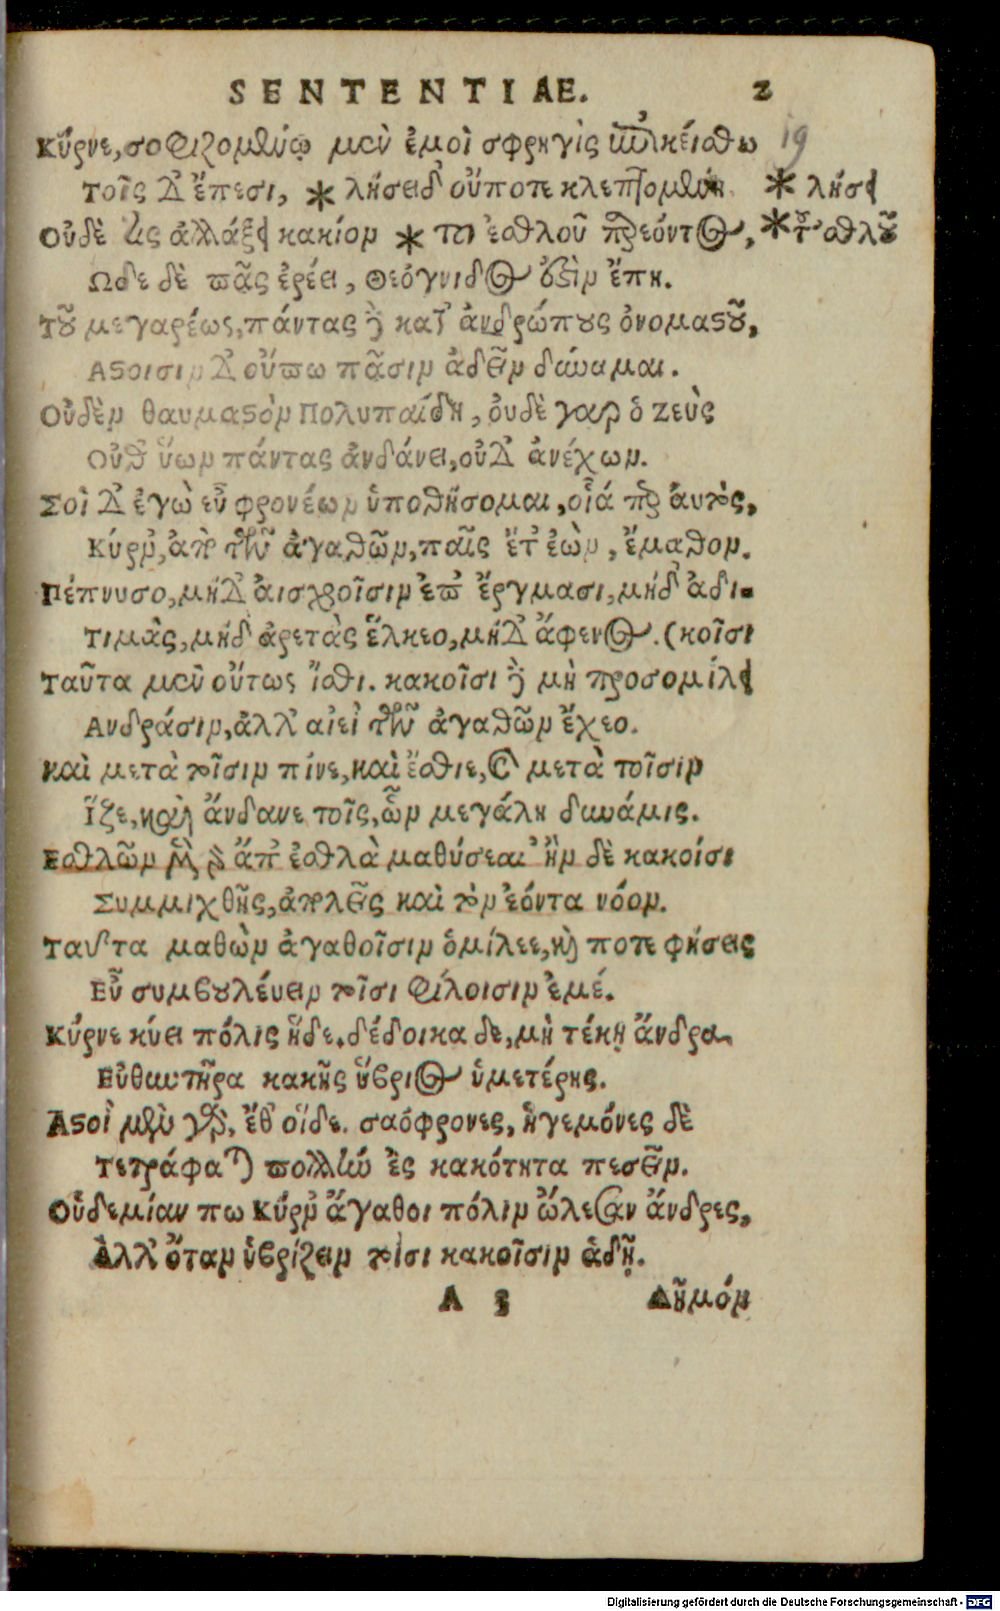 SENTENTIAE. 2
Κύρνε, σοφιζομένῳ μὲν ἐμοὶ σφρηγὶς ἐπικείσθω 19
τοῖς δ' ἔπεσι, * λήσειδ' οὔποτε κλεπτομένη * λήσει
Οὐδέ τις ἀλλάξει κακίον * το ἐσθλοῦ παρεόντος, * τ' ὀσθλοῦ
Ωδε δὲ πᾶς ἐρέει, Θεόγνιδος ἐστὶν ἔπη.
Τοῦ μεγαρέως, πάντας δὲ κατ' ἀνθρώπους ὀνομαστοῦ,
Αστοισιν δ' οὔπω πᾶσιν ἁδεῖν δύναμαι.
Οὐδὲν θαυμαστὸν Πολυπαίδη, ὀυδὲ γαρ ὁ Ζεὺς
Οὐθ' ὕων πάντας ἀνδάνει, οὐδ' ἀνέχων.
Σοὶ δ' ἐγὼ εὖ φρονέων ὑποθήσομαι, οἷά περ ἀυτὸς,
Κύρν', ἀπὸ τῶν ἀγαθῶν, παῖς ἔτ' ἐὼν, ἔμαθον.
Πέπνυσο, μήδ' ἀισχροῖσιν ἐπ' ἔργμασι, μήδ' ἀδι-
τιμὰς, μήδ' ἀρετὰς ἕλκεο, μήδ' ἄφενος. (κοῖσι
Ταῦτα μὲν οὕτως ἴσθι. κακοῖσι δὲ μὴ προσομίλει
Ανδράσιν, ἀλλ' αἰεὶ τῶν ἀγαθῶν ἔχεο.
Καὶ μετὰ τοῖσιν πίνε, καὶ ἔσθιε, καὶ μετὰ τοῖσιν
ἵζε, καὶ ἅνδανε τοῖς, ὧν μεγάλη δυνάμις.
Εσθλῶν μὲν γὰρ ἄπ' ἐσθλὰ μαθήσεαι ἢν δὲ κακοίσι
Συμμιχθῇς, ἀπολεῖς καὶ τὸν ἐόντα νόον.
Ταῦτα μαθὼν ἀγαθοῖσιν ὁμίλεε, καὶ ποτε φήσεις
Εὖ συμβουλέυειν τοῖσι φίλοισιν ἐμέ.
Κύρνε κύει πόλις ἥδε. δέδοικα δε, μὴ τέκῃ ἄνδρα
Εὐθυντῆρα κακῆς ὕβριος ὑμετέρης.
Αστοὶ μὲν γὰρ, ἔθ' οἵδε. σαόφρονες, ἡγεμόνες δὲ
Τετράφαται πολλὴν ἐς κακότητα πεσεῖν.
Οὐδεμίαν πω Κύρν' ἄγαθοι πόλιν ὤλεσαν ἄνδρες,
Ἀλλ' ὅταν ὑβρίζειν τοῖσι κακοῖσιν ἁδῇ.
A 3 Δῆμόν
Digitalisierung gefördert durch die Deutsche Forschungsgemeinschaft - DFG